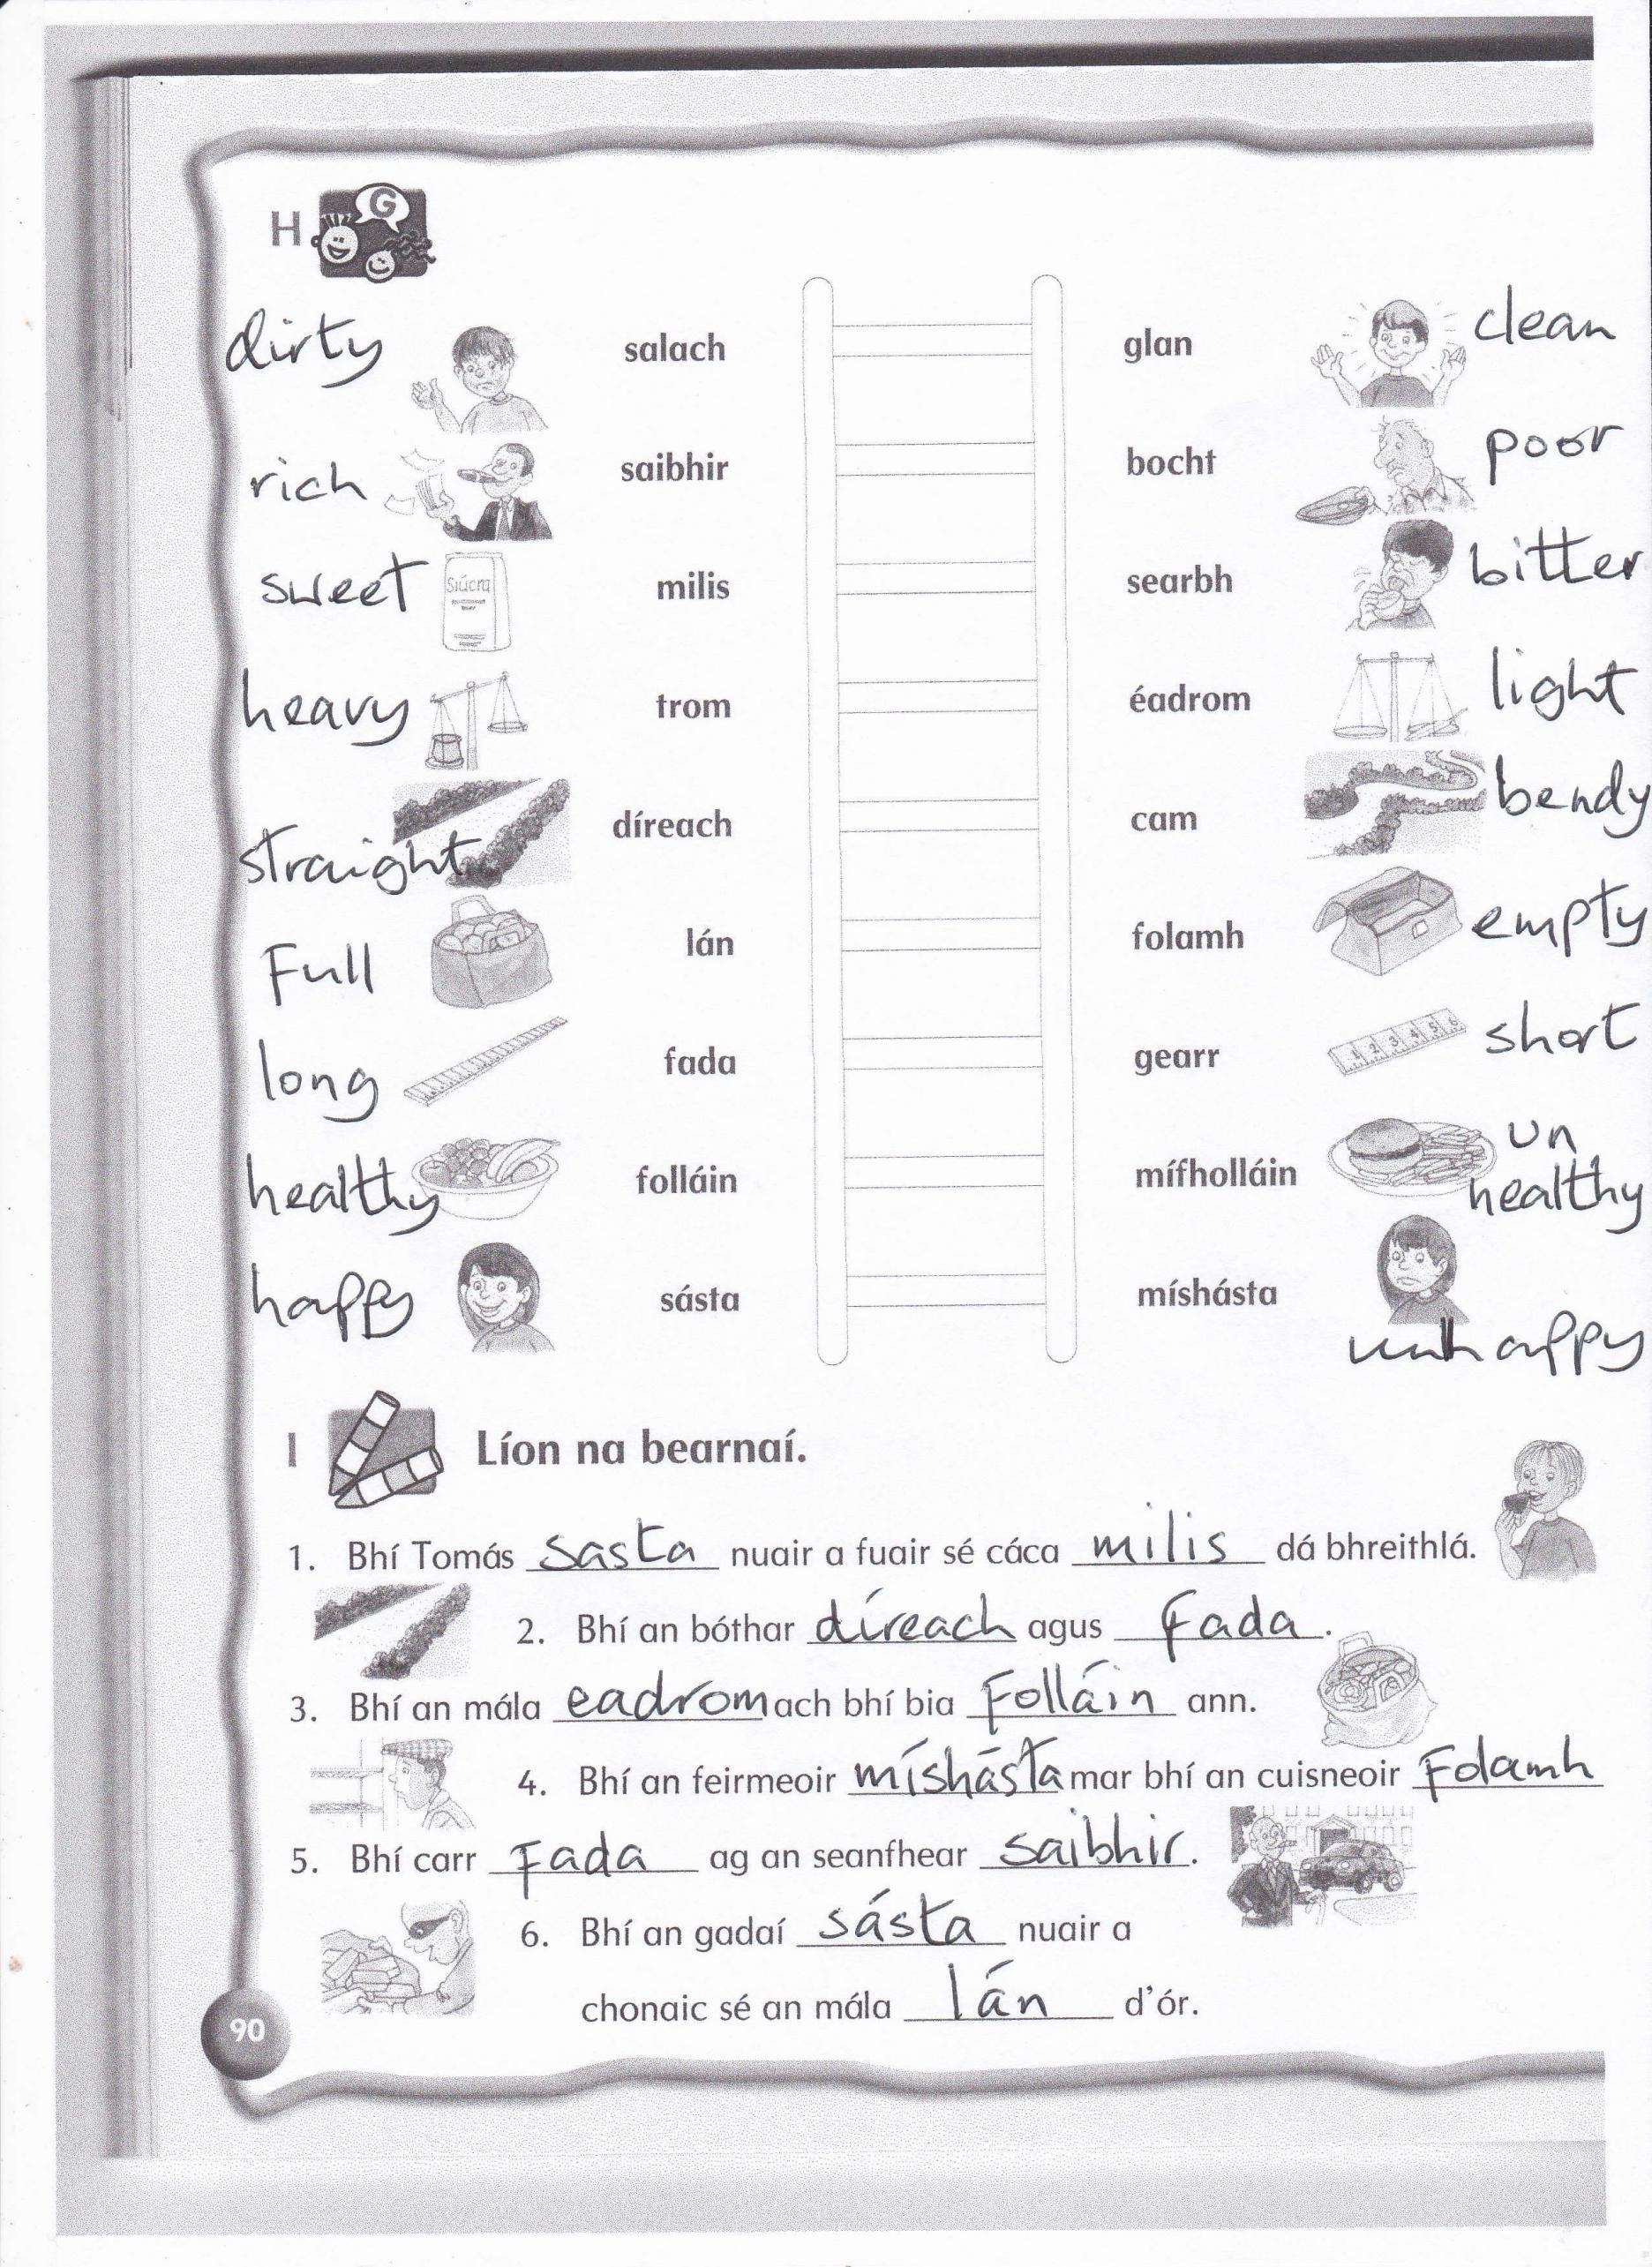 H G
dirty salach glan clean
rich saibhir bocht poor
sweet Siúcra milis searbh bitter
heavy trom éadrom light
straight díreach cam bendy
Full lán folamh empty
long fada gearr 1 2 3 4 5 6 short
healthy folláin mífholláin un
healthy
happy sásta míshásta
unhappy
I Líon na bearnaí.
1. Bhí Tomás sasta nuair a fuair sé cáca milis dá bhreithlá.
2. Bhí an bóthar díreach agus fada.
3. Bhí an mála eadrom ach bhí bia Folláin ann.
4. Bhí an feirmeoir míshásta mar bhí an cuisneoir Folamh
5. Bhí carr Fada ag an seanfhear saibhir.
6. Bhí an gadaí sásta nuair a
chonaic sé an mála lán d'ór.
90